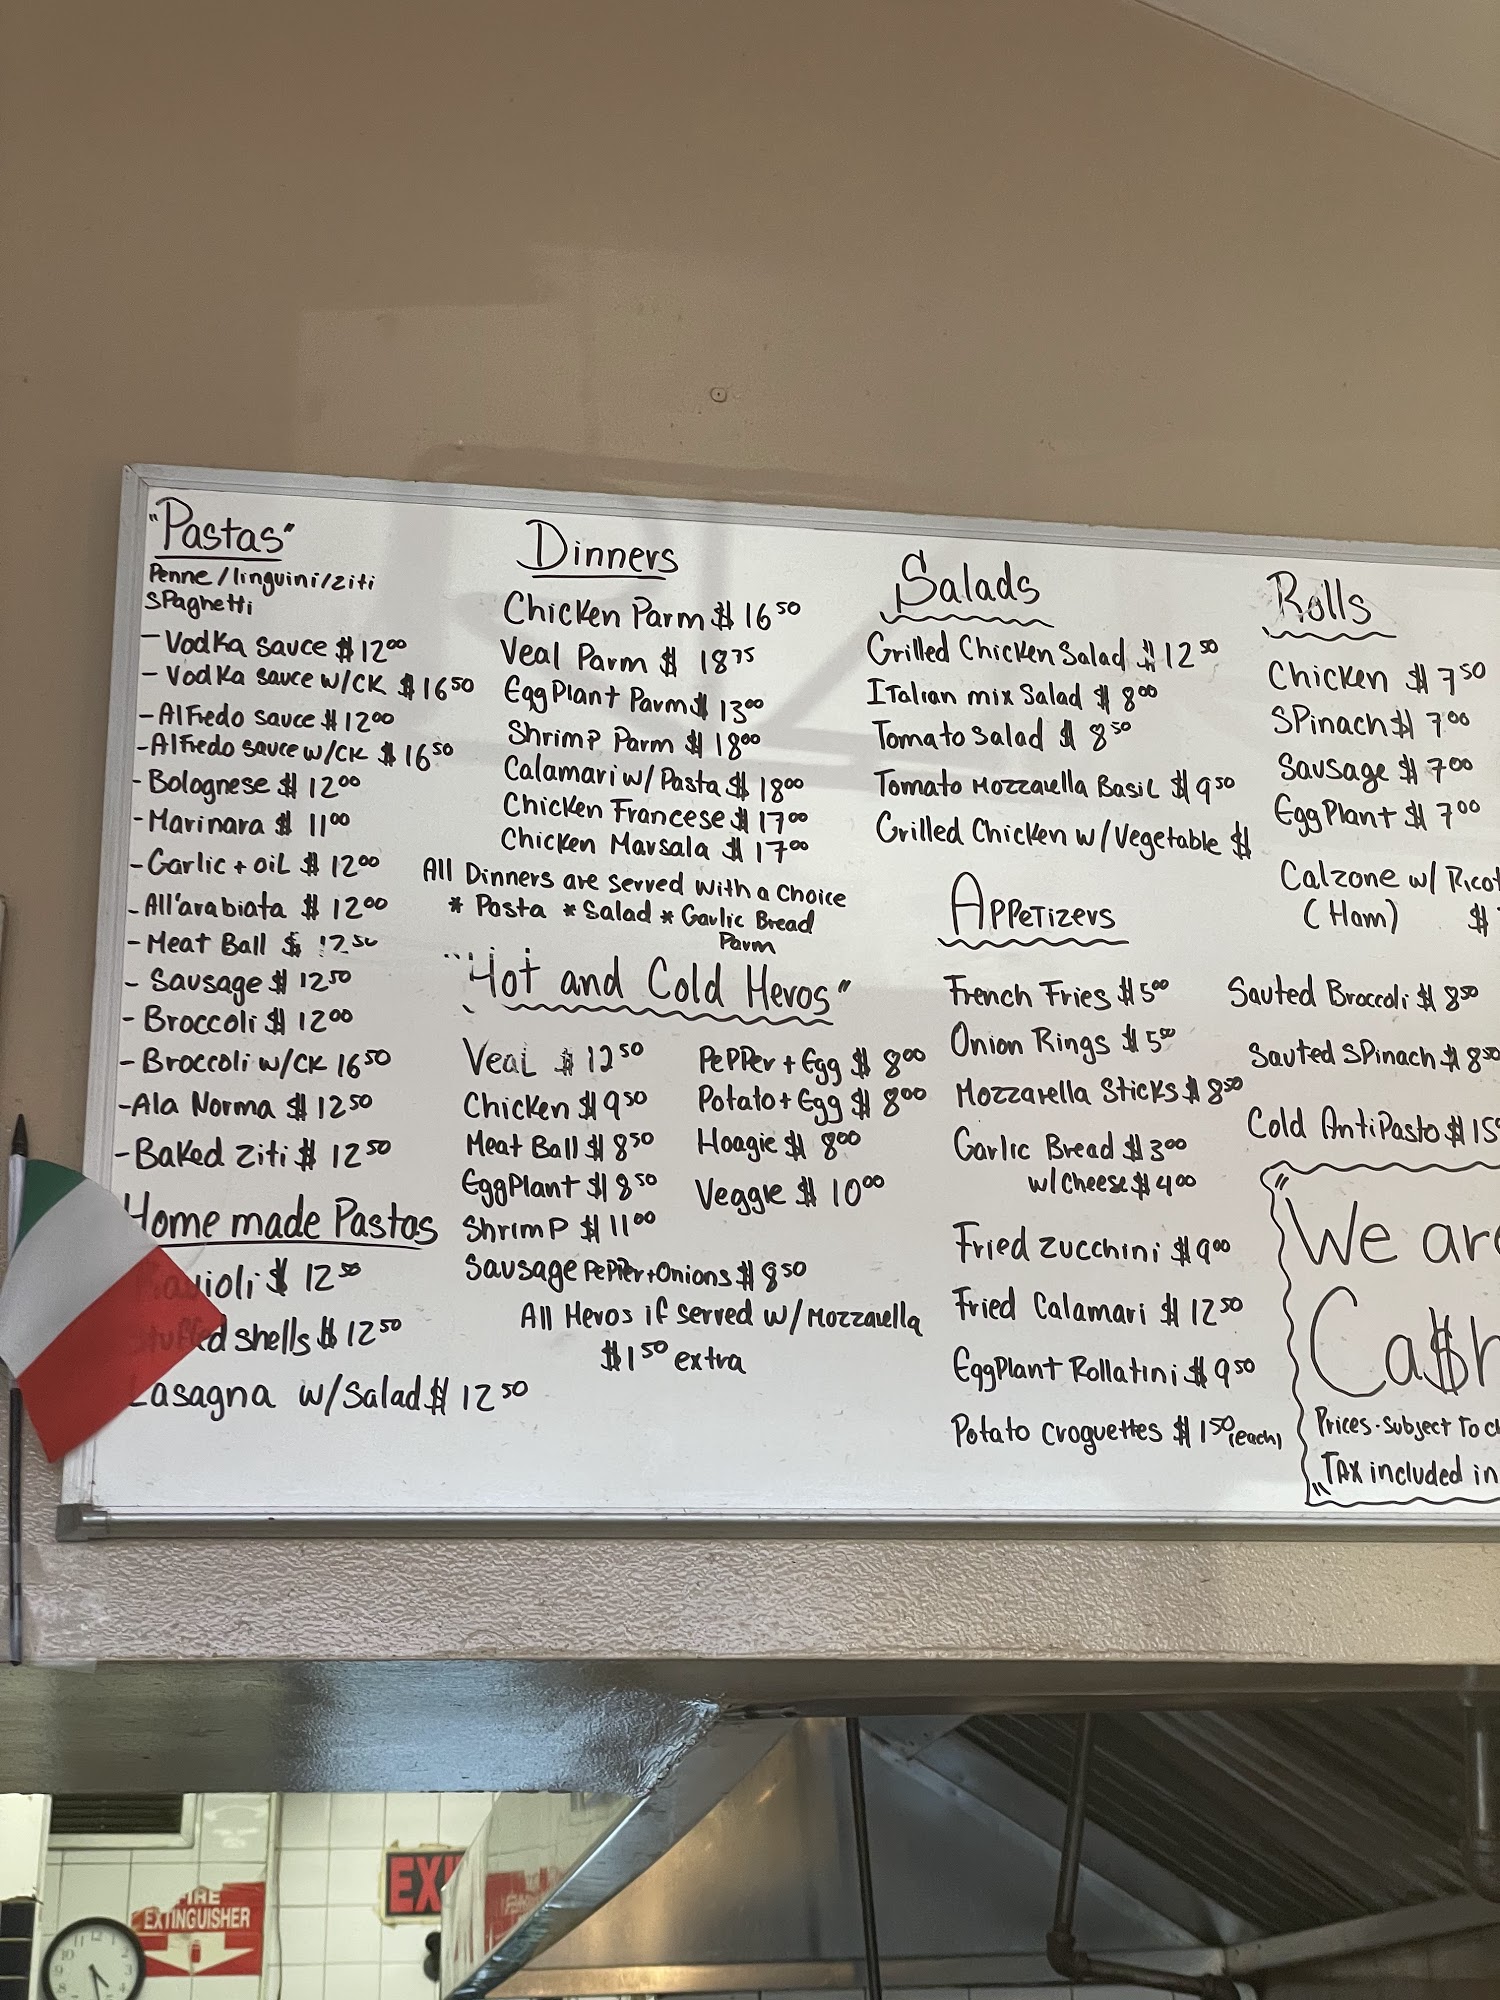 "Pastas"
Penne/linguini/ziti
SPaghetti
- Vodka sauce $12.00
- Vodka sauce w/CK $16.50
- Alfredo sauce $12.00
- Alfredo sauce w/CK $16.50
- Bolognese $12.00
- Marinara $11.00
- Garlic + oil $12.00
- All'arabiata $12.00
- Meat Ball $12.50
- Sausage $12.50
- Broccoli $12.00
- Broccoli w/CK 16.50
- Ala Norma $12.50
- Baked ziti $12.50
Home made Pastas
Ravioli $12.50
Stuffed shells $12.50
Lasagna w/Salad $12.50
Dinners
Chicken Parm $16.50
Veal Parm $18.75
EggPlant Parm $13.00
Shrimp Parm $18.00
Calamari w/Pasta $18.00
Chicken Francese $17.00
Chicken Marsala $17.00
All Dinners are served with a choice
* Pasta * Salad * Garlic Bread
Parm
"Hot and Cold Heros"
Veal $12.50
Chicken $9.50
Meat Ball $8.50
EggPlant $8.50
Shrimp $11.00
Sausage PePPer+Onions $8.50
PePPer + Egg $8.00
Potato + Egg $8.00
Hoagie $8.00
Veggie $10.00
All Heros if served w/Mozzarella
$1.50 extra
Salads
Grilled Chicken Salad $12.50
Italian mix Salad $8.00
Tomato Salad $8.50
Tomato Mozzarella Basil $9.50
Grilled Chicken w/Vegetable $
APPetizers
French Fries $5.00
Onion Rings $5.00
Mozzarella Sticks $8.50
Garlic Bread $3.00
w/cheese $4.00
Fried zucchini $9.00
Fried Calamari $12.50
EggPlant Rollatini $9.50
Potato croquettes $1.50 (each)
Rolls
Chicken $7.50
SPinach $7.00
Sausage $7.00
EggPlant $7.00
Calzone w/
(Ham) $
Sauted Broccoli $8.50
Sauted SPinach $8.50
Cold AntiPasto $15
"We are
Ca$h
Prices Subject To
"Tax included in
FIRE
EXTINGUISHER